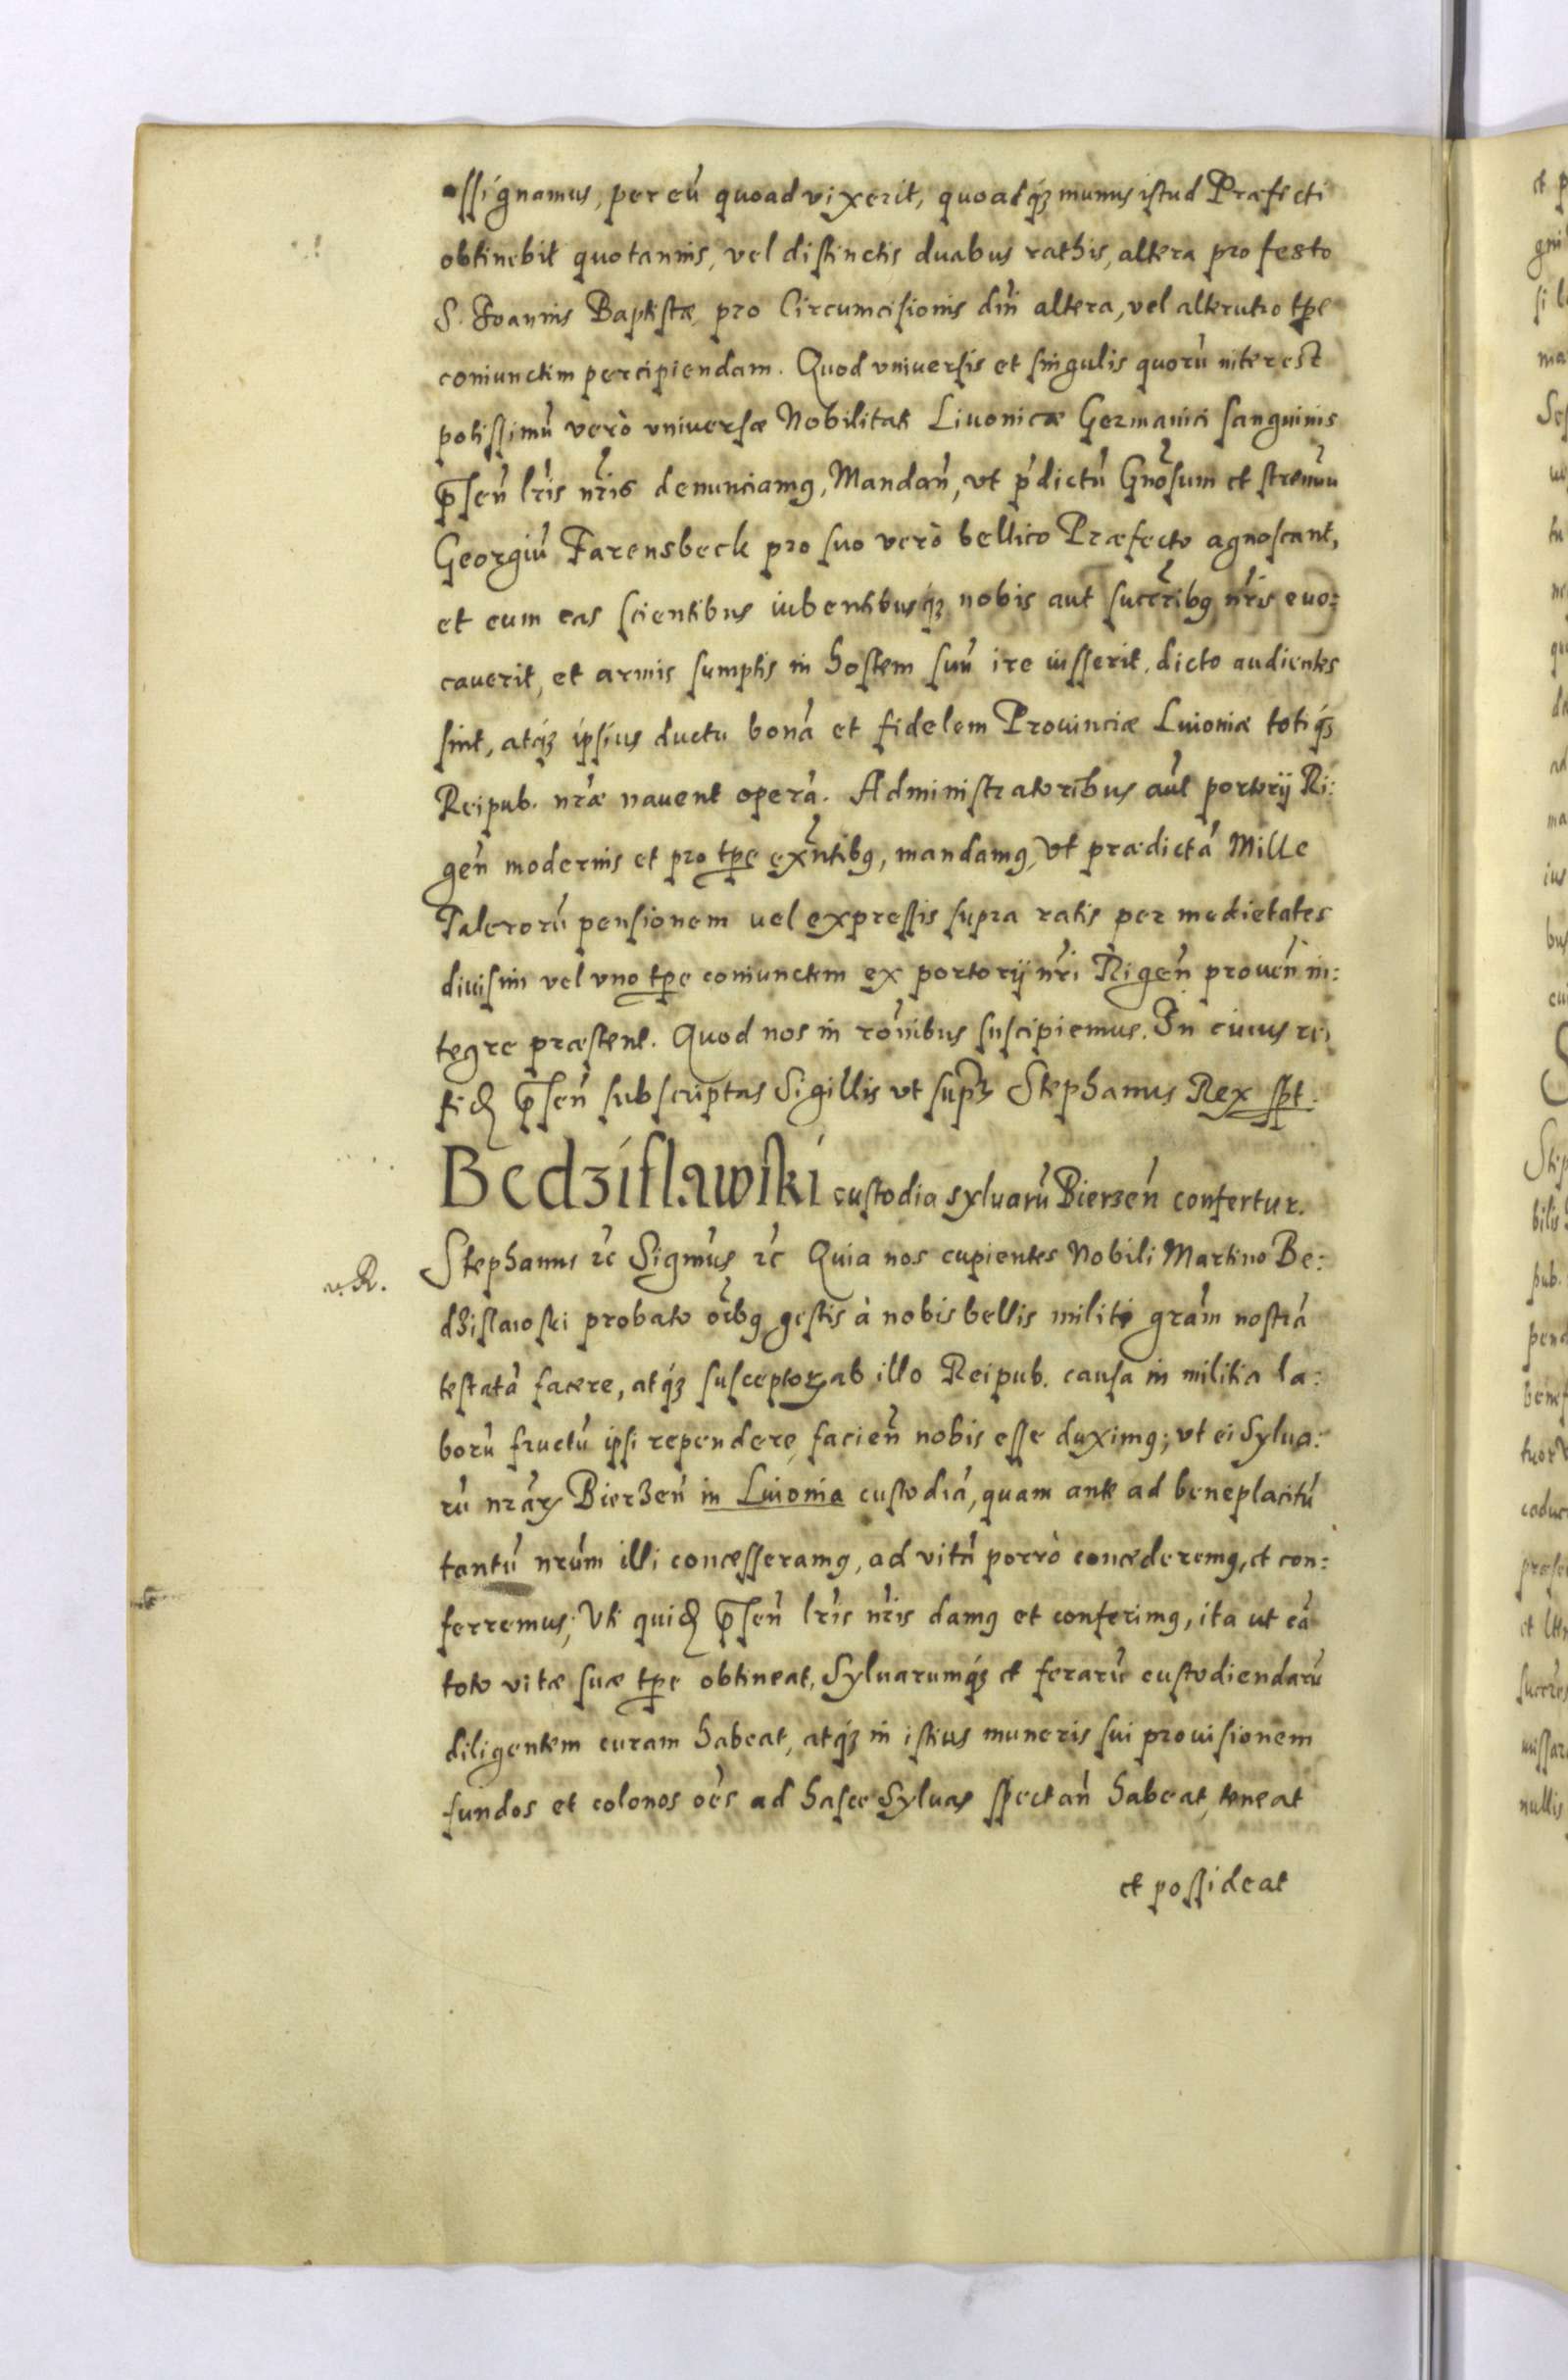 assignamus, per eũ quoad vixerit, quoadq́ꝫ munus istud Præfecti
obtinebit quotannis, vel distinctis duabus rathis, altera pro festo
S. Joannis Baptistæ, pro Circumcisionis dńi altera, vel alterutro tp̃e
coniunctim percipiendam. Quod vniuersis et singulis quorũ interest
potissimũ verò vniuersæ Nobilitati Liuonicæ Germanici sanguinis
p̃señ lr̃is nr̃is denunciamꝯ, Mandañ, vt p̃dictũ Gnõsum et strenuũ
Georgiũ Farensbeck pro suo verò bellico Præfecto agnoscant,
et cum eas scientibus iubentibusq́ꝫ nobis aut succr̃ibꝯ nr̃is euo:
cauerit, et armis sumptis in hostem suũ ire iusserit, dicto audientes
sint, atq́ꝫ ipsius ductu bonã et fidelem Prouinciæ Liuoniæ totiq́ꝫ
Reipub. nr̃æ nauent operã. Administratoribus aũt portorij Ri:
geñ modernis et pro tp̃e exñtibꝯ, mandamꝯ, vt prædictã Mille
Talerorũ pensionem vel expressis supra ratis per medietates
diuisim vel vno tp̃e coniunctim ex portorij nr̃i Rigeñ proueñ in:
tegre præstent. Quod nos in rõnibus suscipiemus. In cuius rei
fid p̃señ subscriptas Sigillis vt supꝫ Stephanus Rex sp̃t.
Bedzislawski custodia syluarũ Bierzeñ confertur.
v. R.
Stephanus ꝛc Sigmũs ꝛc Quia nos cupientes Nobili Martino Be:
dzislawski probato oĩbꝯ gestis à nobis bellis militi grãm nostrã
testatã facere, atq́ꝫ susceptoꝝ ab illo Reipub. causa in militia la:
borũ fructũ ipsi rependere, facieñ nobis esse duximꝯ; vt ei Sylua:
rũ nrãꝝ Bierzeñ in Liuonia custodiã, quam ante ad beneplacitũ
tantũ nrũm illi concesseramꝯ, ad vitã porrò concederemꝯ, et con:
ferremus; Vti quid p̃señ lr̃is nr̃is damꝯ et conferimꝯ, ita ut eã
toto vitæ suæ tp̃e obtineat, Syluarumq́ꝫ et ferarũ custodiendarũ
diligentem curam habeat, atq́ꝫ in istius muneris sui prouisionem
fundos et colonos oẽs ad hasce Syluas spectañ habeat, teneat
et possideat